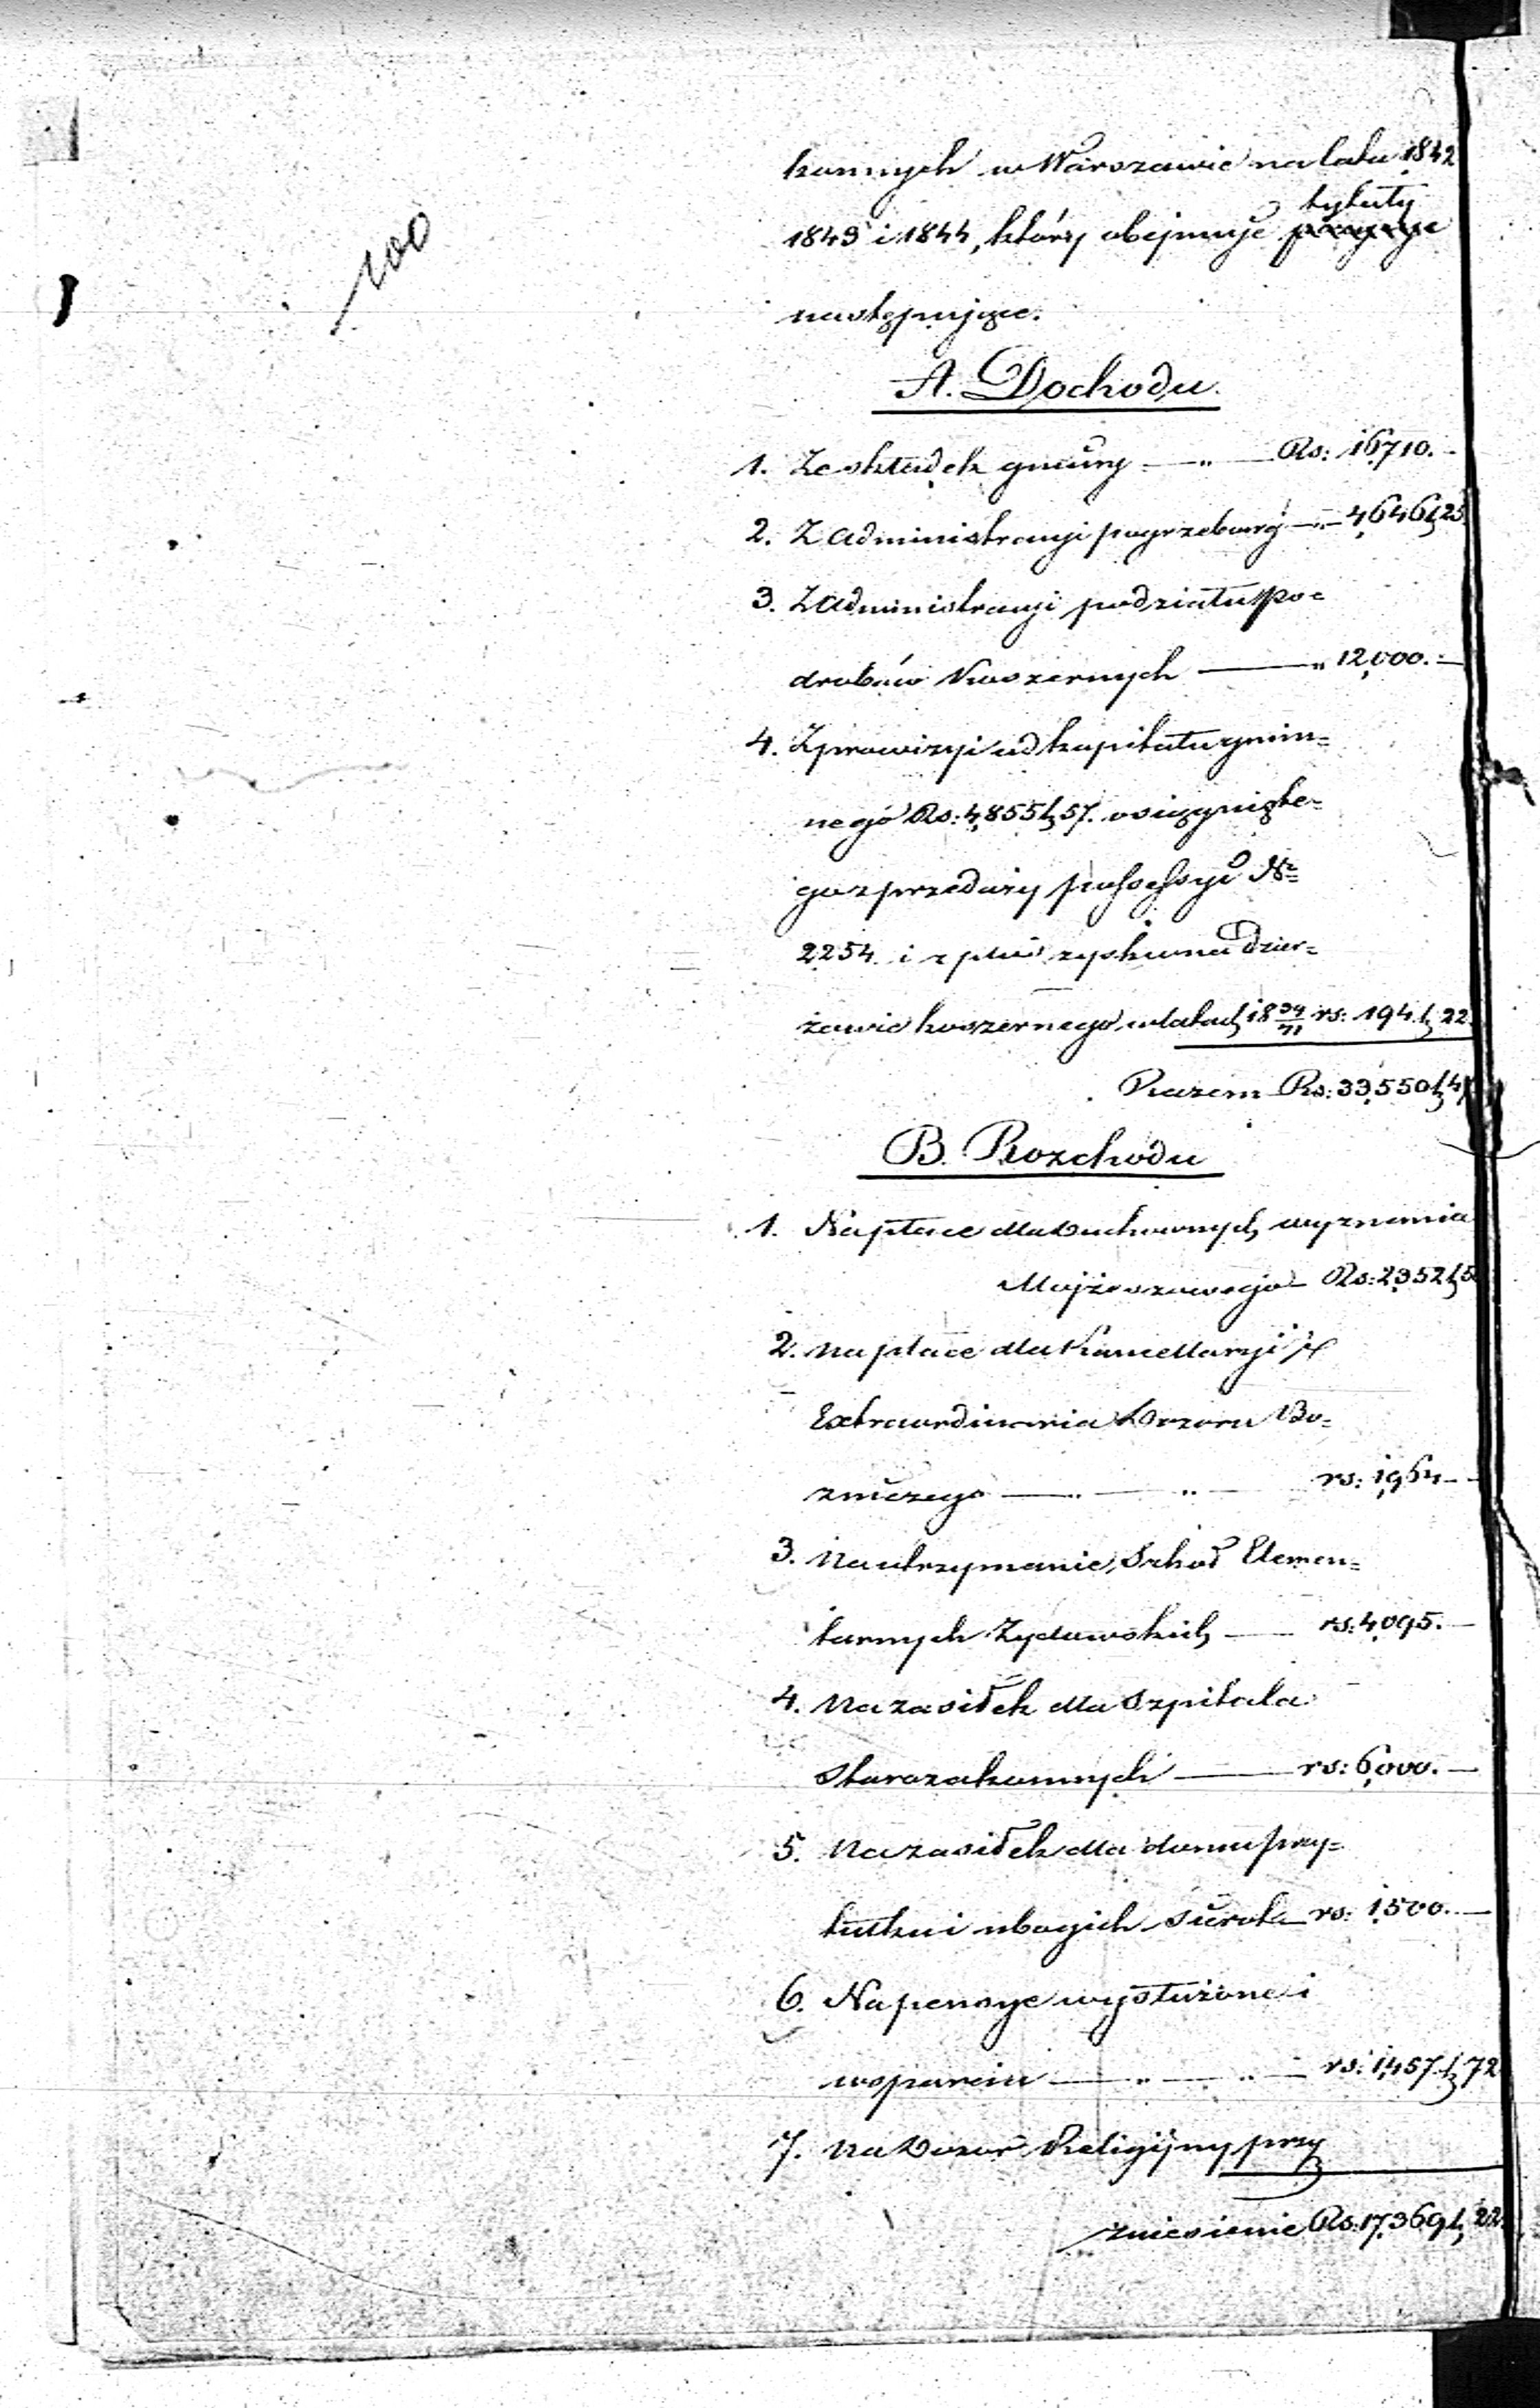 200
konnych w Warszawie na lata 1842
tytuły
1843 i 1844, który obejmuje
następujące.
A. Dochodu.
1. Ze składek gminy — „ — Rs: 16,710. -
2. Z administracyi pogrzebowej — „ — 4,646 k 25
3. Z administracyi podziału po=
drobów koszernych — „ 12,000. —
4. Z prowizyi od kapitału gmin=
nego Rs: 4,855 k 57. osiągnięte=
go z przedaży possessyi Nr
2254. i z zysku na Dzier=
żawie koszernego w latach 18 39/41 rs: 194 k 22.
Razem Rs: 33,550 k 47
B. Rozchodu
1. Na płace dla Duchownych wyznania
Mojżeszowego — Rs: 2,352 k 5
2. na płace dla Kancellaryi i
Extraordinaria Dozoru Bo=
żniczego — „ — „ — rs: 1,964 - -
3. Na utrzymanie Szkoł Elemen=
tarnych Żydowskich — rs: 4,095. —
4. Na zasiłek dla Szpitala
Starozakonnych — rs: 6,000. —
5. Na zasiłek dla domu przy=
tułku i ubogich sierot — rs: 1,500. —
6. Na pensye wysłużone i
wsparcia — „ — „ — rs: 1,457 k 72
7. Na Dozor Religijny przy
zniesienie Rs: 17,369 k 22.